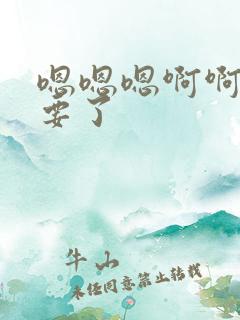 嗯嗯嗯啊啊
要了
牛山
未经同意禁止转载